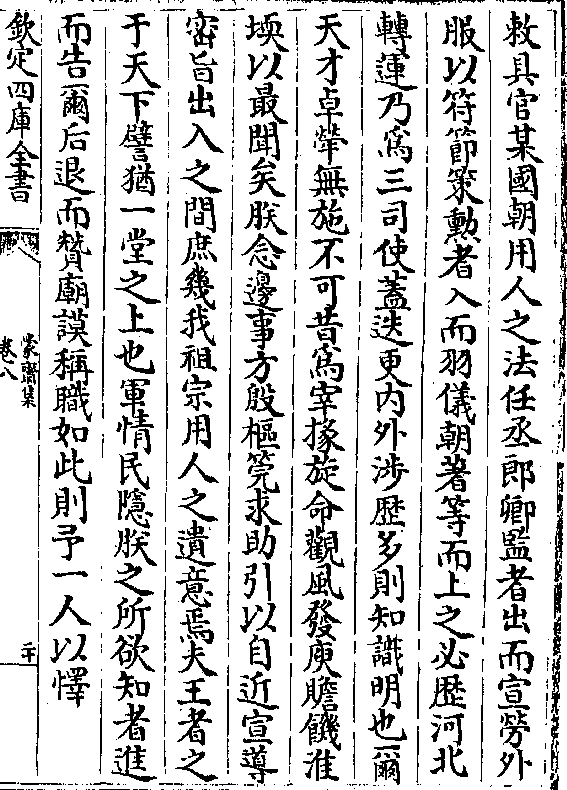 敕具官某國朝用人之法任丞郎卿監者出而宣勞外
服以符節策勲者入而羽儀朝著等而上之必歴河北
轉運乃為三司使蓋迭更内外涉歴多則知識明也爾
天才卓犖無施不可昔為宰掾旋命觀風發庾贍饑淮
堧以最聞矣朕念邊事方殷樞筦求助引以自近宣導
密旨出入之間庶幾我祖宗用人之遺意焉夫王者之
于天下譬猶一堂之上也軍情民隠朕之所欲知者進
而告爾后退而賛廟謨稱職如此則予一人以懌
欽定四庫全書
蒙齋集
卷八
二十